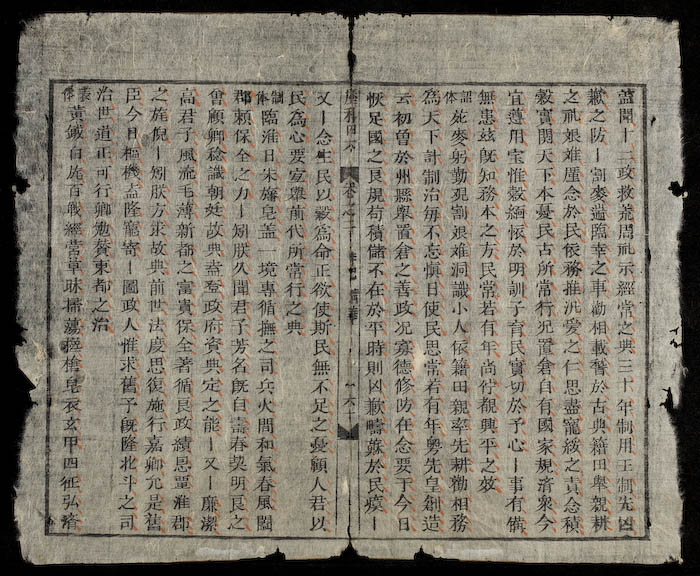 蓋聞丨二政救荒周祀示經常之典三十年制用王制先凶
歉之防丨割麥遄臨幸之車勸相載耆於古典籍田舉親耕
之祀艱难廑念於民依務推愛之仁思盡寵綏之責念積
穀實関天下本憂民占所常行犯置倉自有國家規済衆今
宜遵用宝惟穀緬懷於明訓子育民實切於予心丨事有備
無患玆旣知務本之方民常若有年尚付覩興平之效
詔体 麥躬勤現割艱难洞識小人依籍田親率先耕勸相務
為天下計制治每不忘慎日使民思常若有年粤先皇創造
云初曾於州縣舉置倉之善政况寡德修防在念要于今日
恢足國之良規苟積儲不在於平時則凶歉疇蘇於民瘼丨
慶科四六
又丨念生民以穀為命正欲使斯民無不足之憂願人君以
民為心要宜舉前代所常行之典
制体 臨淮日朱旛皂盖一境專循撫之司兵火間和氣春風闔
郡頼保全之力丨矧朕久聞君子芳名旣自壽春獎明良之
曾顧卿稔識朝廷故典盍登政府資典定之能丨又丨廉潔
高君子風流毛薄新都之富貴保全著循良政績恩覃淮郡
之旄倪丨矧朕方求故典前世法度思復施行嘉卿允是舊
臣今日樞機盍隆寵寄丨圖政人惟求舊予旣隆北斗之司
治世道正可行卿勉賛東都之治
表体 黄鉞白旄百戰經常草昧掃蕩攙槍皂衣玄甲四征弘済